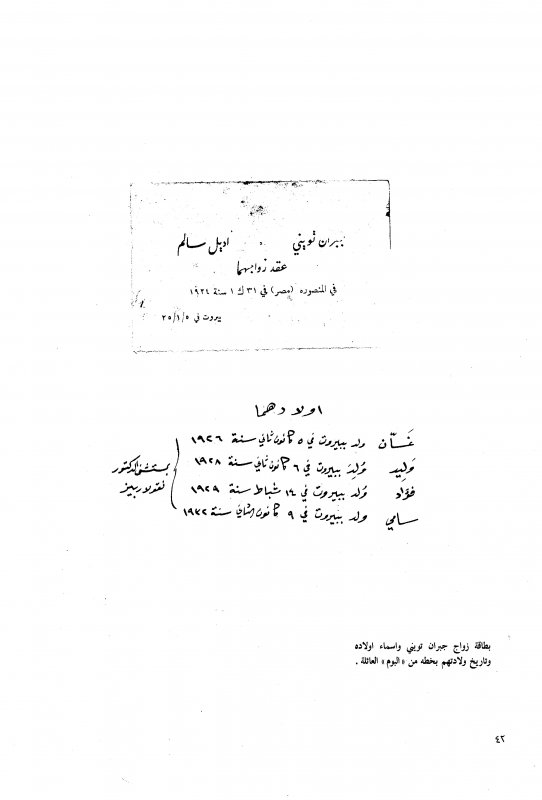 جبران تويني    اديل سالم
عقد زواجهما
في المنصوره (مصر) في ٣١ ك ١ سنة ١٩٢٤
بيروت في ٢٥/١/٥
اولادهما
غسّان ولد ببيروت في ٥ كانون ثاني سنة ١٩٢٦
وليد وُلِدَ ببيروت في ٦ كانون ثاني سنة ١٩٢٨
فؤاد وُلد ببيروت في ١٤ شباط سنة ١٩٢٩
سامي ولد ببيروت في ٩ كانون الثاني سنة ١٩٣٢
بمستشفى الدكتور
نقولا ربيز
بطاقة زواج جبران تويني واسماء اولاده
وتاريخ ولادتهم بخطه من «البوم» العائلة .
٤٢